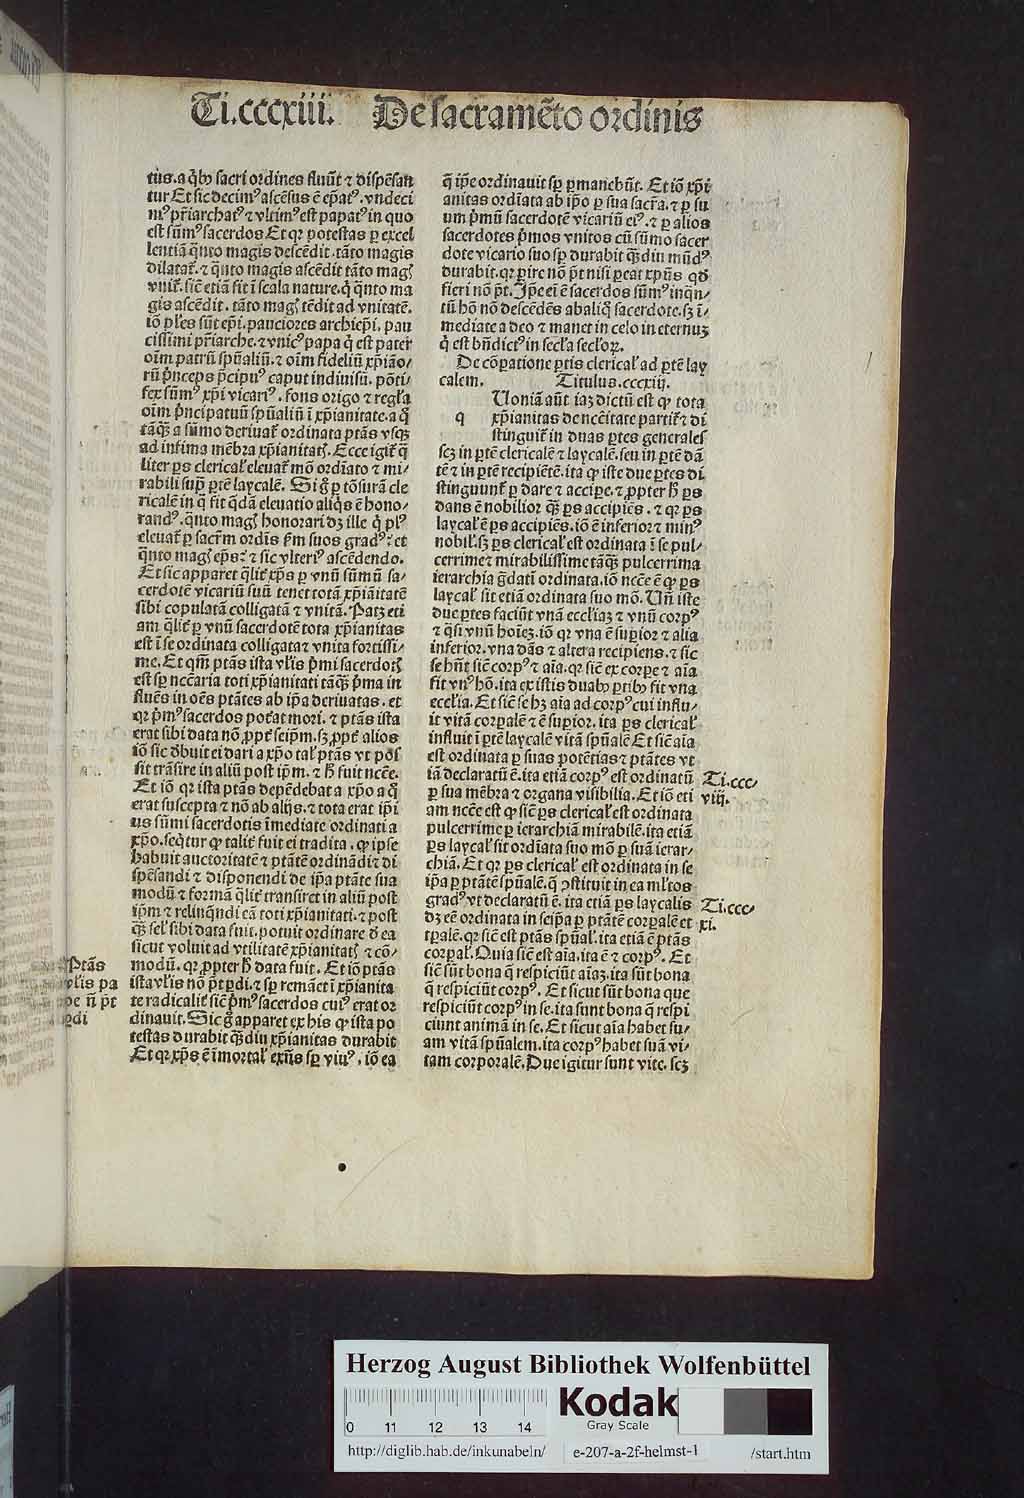 Ti.cccxiii. De sacramēto ordinis
tus. a qͥbꝰ sacri ordines fluūt ⁊ dispēsan
tur Et sic decimꝰ ascēsus ē ep̄atꝰ. vndeci
mꝰ pr̄iarchatꝰ ⁊ vltimꝰ est papatꝰ in quo
est sūmꝰ sacerdos Et qr potestas ꝑ excel
lentiā qͣnto magis descēdit. tāto magis
dilatat̄. ⁊ qͣnto magis ascēdit tāto magꝭ
vnit̄. sic̄ etiā fit ī scala nature. qͥ qͣnto ma
gis ascēdit. tāto magꝭ tēdit ad vnitatē.
iō pl̄es sūt ep̄i. pauciores archiep̄i. pau
cissimi pr̄iarche. ⁊ vnicꝰ papa qͥ est pater
oīm patrū spūaliū. ⁊ oīm fideliū xp̄iāo⸗
rū pͥnceps p̄cipuꝰ caput indiuisū. pōti⸗
fex sūmꝰ xp̄i vicariꝰ. fons origo ⁊ regl̄a
oīm pͥncipatuū spūaliū ī xp̄ianitate. a qͦ
tāqꝫ a sūmo deriuat̄ ordinata ptās vsqꝫ
ad infima mēbra xp̄ianitatꝭ. Ecce igit̄ qͣ
liter ps clerical̄ eleuat̄ mō ordīato ⁊ mi⸗
rabili sup̄ ꝑtē laycalē. Si gͦ ꝑ tōsurā cle
ricalē in qͣ fit qͥdā eleuatio aliqͥs ē hono⸗
randꝰ. qͣnto magꝭ honorari dꝫ ille qͥ plꝰ
eleuat̄ ꝑ sacr̄m ordīs ẜm suos gradꝰ: et
qͣnto magꝭ ep̄s: ⁊ sic vlteriꝰ ascēdendo.
Et sic apparet qͣlit̄ xp̄s ꝑ vnū sūmū sa⸗
cerdotē vicariū suū tenet totā xp̄ianitatē
sibi copulatā colligatā ⁊ vnitā. Patꝫ eti
am qͣlit̄ ꝑ vnū sacerdotē tota xp̄ianitas
est ī se ordinata colligata ⁊ vnita fortissi⸗
me. Et qm̄ ptās ista vl̄is pͥmi sacerdotꝭ
est sꝑ nc̄caria toti xp̄ianitati tāqꝫ pͥma in
fluēs in oēs ptātes ab ip̄a deriuatas. et
qr pͥmꝰ sacerdos poterat mori. ⁊ ptās ista
erat sibi data nō ꝓpt̄ seip̄m. sꝫ ꝓpt̄ alios
iō sic dꝫbuit ei dari a xp̄o tal̄ ptās vt pos̄
sit trāsire in aliū post ip̄m. ⁊ hͦ fuit ncc̄e.
Et iō qr ista ptās depēdebat a xp̄o a qͦ
erat suscepta ⁊ nō ab alijs. ⁊ tota erat ip̄i
us sūmi sacerdotis īmediate ordinati a
xp̄o. seqͥtur ꝙ talit̄ fuit ei tradita. ꝙ ipse
habuit auctoritatē ⁊ ptātē ordināndi ⁊ di
spēsandi ⁊ disponendi de ip̄a ptāte sua
modū. ⁊ formā qͣlit̄ transiret in aliū post
ip̄m ⁊ relinqͥndi eā toti xp̄ianitati. ⁊ post
qͣꝫ sel̄ sibi data fuit. potuit ordinare d̄ ea
sicut voluit ad vtilitatē xp̄ianitatꝭ ⁊ cō⸗
modū. qr ꝓpter hͦ data fuit. Et iō ptās
ista vl̄is nō pt̄ ꝑdi. ⁊ sꝑ remāet ī xp̄ianita
te radicalit̄ sic̄ pͥmꝰ sacerdos cuiꝰ erat or
dinauit. Sic gͦ apparet ex his ꝙ ista po
testas durabit qͣꝫdiu xp̄ianitas durabit
Et qr xp̄s ē īmortal̄ exn̄s sꝑ viuꝰ, iō ea
Ptās
vl̄is pa
pe nō pt̄
ꝑdi
q̄ ip̄e ordinauit sꝑ ꝑmanebūt. Et iō xp̄i
anitas ordīata ab ip̄o ꝑ sua sacr̄a. ⁊ ꝑ su
um pͥmū sacerdotē vicariū eiꝰ. ⁊ ꝑ alios
sacerdotes pͥmos vnitos cū sūmo sacer
dote vicario suo sꝑ durabit qͣꝫdiu mūdꝰ
durabit. qr ꝑire nō pt̄ nisi ꝑeat xp̄us qd̓
fieri nō pt̄. Ip̄e ei ē sacerdos sūmꝰ inqͣn⸗
tū hō nō descēdēs ab aliqͦ sacerdote. sꝫ ī⸗
mediate a deo ⁊ manet in celo in eternuꝫ
qͥ est bn̄dictꝰ in secl̄a secl̄oꝝ.
De cōꝑatione ꝑtis clerical̄ ad ꝑtē lay
calem. Titulus. cccxiij.
q
Uoniā aūt iaꝫ dictū est ꝙ tota
xp̄ianitas de nc̄citate partit̄ ⁊ di
stinguit̄ in duas ꝑtes generales
scꝫ in ꝑtē clericalē ⁊ laycalē. seu in ꝑtē dā
tē ⁊ in ꝑtē recipiētē. ita ꝙ iste due ꝑtes di.
stinguunt̄ ꝑ dare ⁊ acciꝑe. ⁊ ꝓpter hͦ ps
dans ē nobilior qͣꝫ ps accipiēs. ⁊ qr ps
laycal̄ ē ps accipiēs. iō ē inferior ⁊ minꝰ
nobil̄. sꝫ ps clerical̄ est ordinata ī se pul⸗
cerrime ⁊ mirabilissime tāqꝫ pulcerrima
ierarchia gͣdatī ordinata. iō ncc̄e ē ꝙ ps
laycal̄ sit etiā ordinata suo mō. Vn̄ iste
due ꝑtes faciūt vnā eccl̄iaꝫ ⁊ vnū corpꝰ
⁊ qͣsi vnū hoīeꝫ. iō qr vna ē suꝑior ⁊ alia
inferior. vna dās ⁊ altera recipiens. ⁊ sic
se hn̄t sic̄ corpꝰ ⁊ aīa. qr sic̄ ex corꝑe ⁊ aīa
fit vnꝰ hō. ita ex istis duabꝰ ꝑtibꝰ fit vna
eccl̄ia. Et sic̄ se hꝫ aīa ad corpꝰ cui influ⸗
it vitā corꝑalē ⁊ ē suꝑior. ita ps clerical̄
influit ī ꝑtē laycalē vitā spūalē Et sic̄ aīa
est ordinata ꝑ suas potētias ⁊ ptātes vt
iā declaratū ē. ita etiā corpꝰ est ordinatū
ꝑ sua mēbra ⁊ organa visibilia. Et iō eti
am ncc̄e est ꝙ sic̄ ps clerical̄ est ordinata
pulcerrime ꝑ ierarchiā mirabilē. ita etiā
ps laycal̄ sit ordīata suo mō ꝑ suā ierar⸗
chiā. Et qr ps clerical̄ est ordinata in se
ip̄a ꝑ ptātē spūalē. q̄ ꝯstituit in ea ml̄tos
gradꝰ vt declaratū ē. ita etiā ps laycalis
dꝫ eē ordinata in seip̄a ꝑ ptātē corꝑalē et
tꝑalē. qr sic̄ est ptās spūal̄. ita etiā ē ptās
corꝑal̄. Quia sic̄ est aīa. ita ē ⁊ corpꝰ. Et
sic̄ sūt bona q̄ respiciūt aīaꝫ. ita sūt bona
q̄ respiciūt corpꝰ. Et sicut sūt bona que
respiciūt corpꝰ in se. ita sunt bona q̄ respi
ciunt animā in se. Et sicut aīa habet su⸗
am vitā spūalem. ita corpꝰ habet suā vi⸗
tam corporalē. Due igitur sunt vite. scꝫ
Ti.ccc⸗
viij.
Ti.ccc⸗
xi.
Herzog August Bibliothek Wolfenbüttel
Kodak
Gray Scale
0 11 12 13 14
http://diglib.hab.de/inkunabeln/ e-207-a-2f-helmst-1 /start.htm